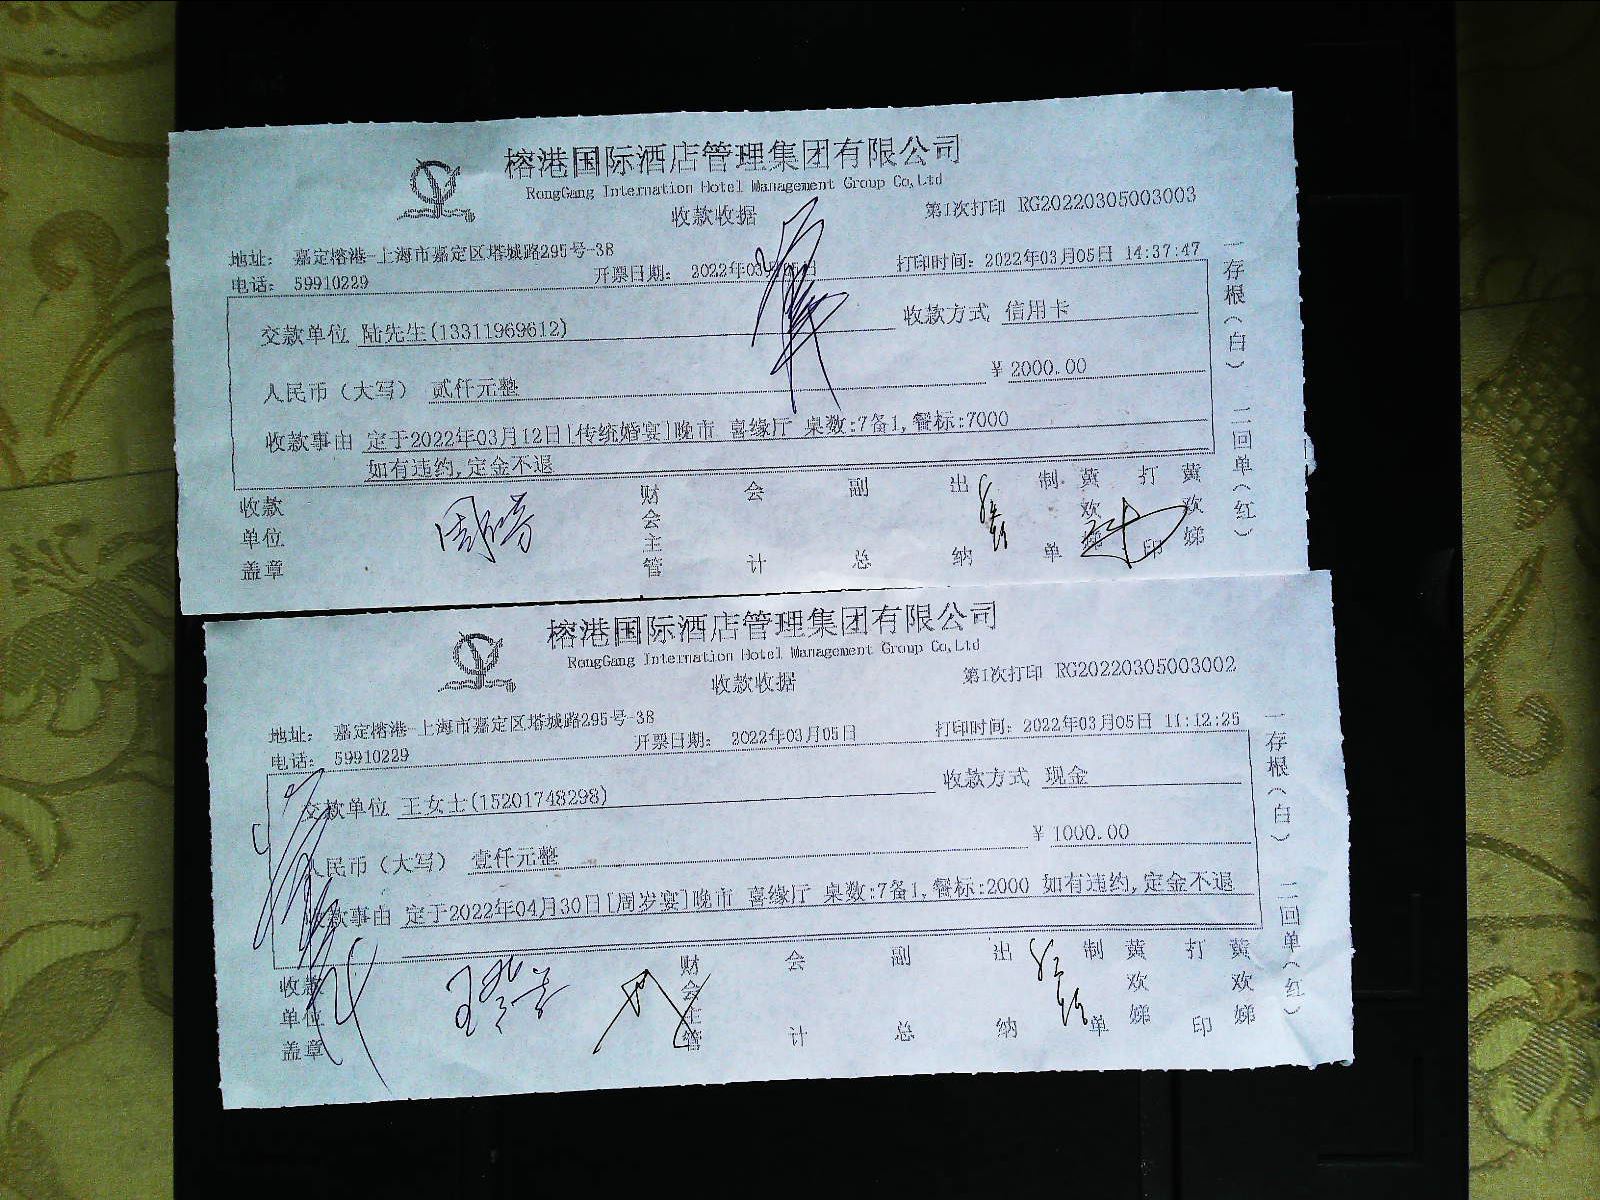 榕港国际酒店管理集团有限公司
RongGang Internation Hotel Management Group Co,Ltd
收款收据
第1次打印 RG20220305003003
地址: 嘉定榕港-上海市嘉定区塔城路295号-38
电话: 59910229
开票日期: 2022年03月05日
打印时间: 2022年03月05日 14:37:47
交款单位 陆先生(13311969612)
收款方式 信用卡
人民币（大写） 贰仟元整
¥ 2000.00
收款事由 定于2022年03月12日[传统婚宴]晚市 喜缘厅 桌数:7备1,餐标:7000
如有违约,定金不退
收款单位盖章
财会主管
会计
副总
出纳
制单
黄欢娣
打印
黄欢娣
一存根(白) 二回单(红)
榕港国际酒店管理集团有限公司
RongGang Internation Hotel Management Group Co,Ltd
收款收据
第1次打印 RG20220305003002
地址: 嘉定榕港-上海市嘉定区塔城路295号-38
电话: 59910229
开票日期: 2022年03月05日
打印时间: 2022年03月05日 11:12:25
交款单位 王女士(15201748298)
收款方式 现金
人民币（大写） 壹仟元整
¥ 1000.00
收款事由 定于2022年04月30日[周岁宴]晚市 喜缘厅 桌数:7备1,餐标:2000 如有违约,定金不退
收款单位盖章
财会主管
会计
副总
出纳
制单
黄欢娣
打印
黄欢娣
一存根(白) 二回单(红)